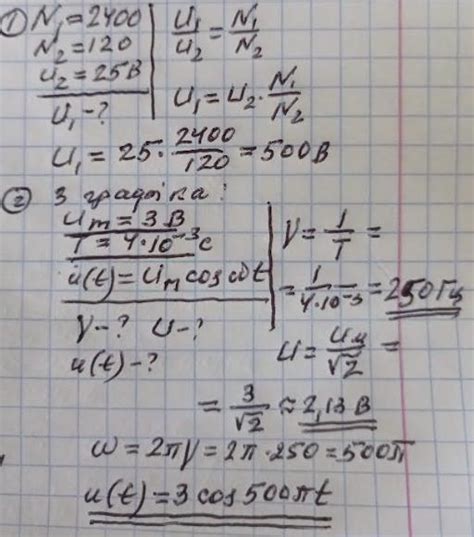 ① N₁=2400
N₂=120
U₂=25В
U₁-?
U₁/U₂=N₁/N₂
U₁=U₂·N₁/N₂
U₁=25·2400/120=500В
② З графіка:
Uₘ=3В
T=4·10⁻³с
u(t)=Uₘcosωt
ν-? U-?
u(t)-?
ν=1/T=
=1/4·10⁻³=250Гц
U=Uₘ/√2=
=3/√2≈2,13В
ω=2πν=2π·250=500π
u(t)=3cos500πt